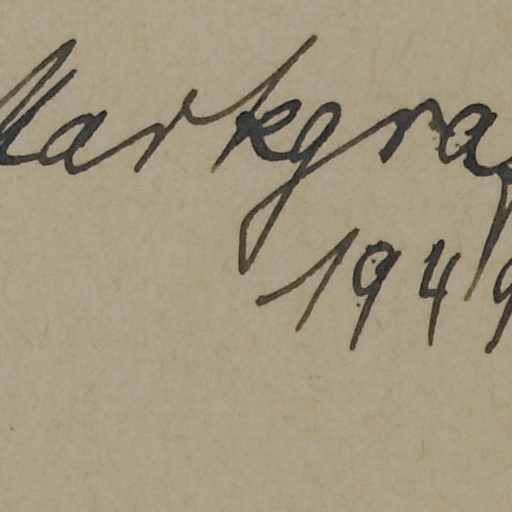 Markgraf
1949